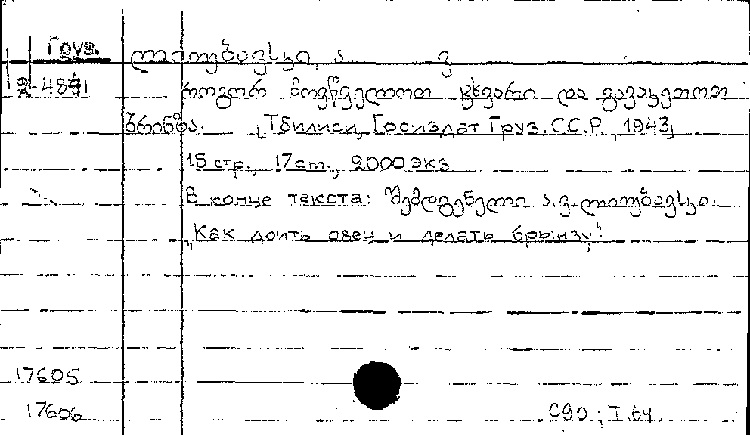 Груз.
ლიოუბავსკი, ა. ვ
2-4841
როგორ მოვწველოთ ცხვარი და გავაკეთოთ
ბრინზა. [Тбилиси, Госиздат Груз. С.С.Р., 1943]
15 стр., 17 см., 2000 экз
В конце текста: შემდგენელი ა.ვ. ლიოუბავსკი.
"Как доить овец и делать брынзу"
17605
17606
C90; I.ty